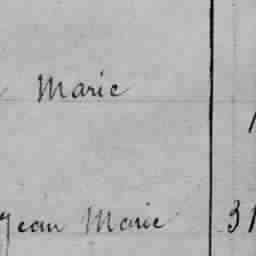 Marie
Jean Marie 31